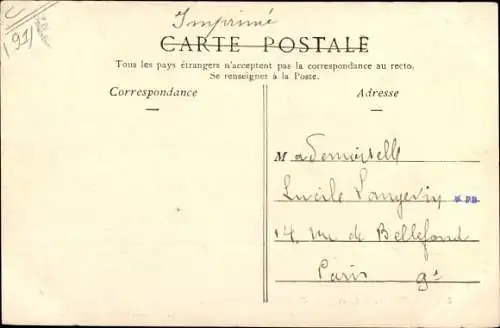 Imprimé
CARTE POSTALE
Tous les pays étrangers n'acceptent pas la correspondance au recto.
Se renseigner à la Poste.
Correspondance
Adresse
Mademoiselle
Lucile Langevin
14, rue de Bellefond
Paris 9e